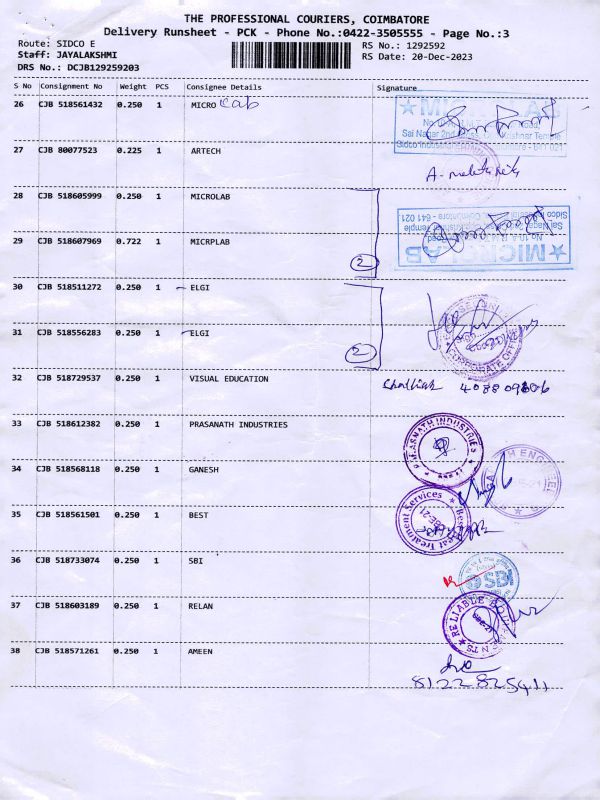 THE PROFESSIONAL COURIERS, COIMBATORE
Delivery Runsheet - PCK - Phone No.:0422-3505555 - Page No.:3
Route: SIDCO E
Staff: JAYALAKSHMI
DRS No.: DCJB129259203
RS No.: 1292592
RS Date: 20-Dec-2023
S No Consignment No Weight PCS Consignee Details Signature
26 CJB 518561432 0.250 1 MICRO Lab
27 CJB 80077523 0.225 1 ARTECH
28 CJB 518605999 0.250 1 MICROLAB
29 CJB 518607969 0.722 1 MICRPLAB
2
MICROLAB
30 CJB 518511272 0.250 1 ELGI
31 CJB 518556283 0.250 1 ELGI
2
CORPORATE OFFICE
32 CJB 518729537 0.250 1 VISUAL EDUCATION
33 CJB 518612382 0.250 1 PRASANATH INDUSTRIES
34 CJB 518568118 0.250 1 GANESH
35 CJB 518561501 0.250 1 BEST
Best Heat Treatment Services
36 CJB 518733074 0.250 1 SBI
SBI
37 CJB 518603189 0.250 1 RELAN
RELIABLE
38 CJB 518571261 0.250 1 AMEEN
8122825411